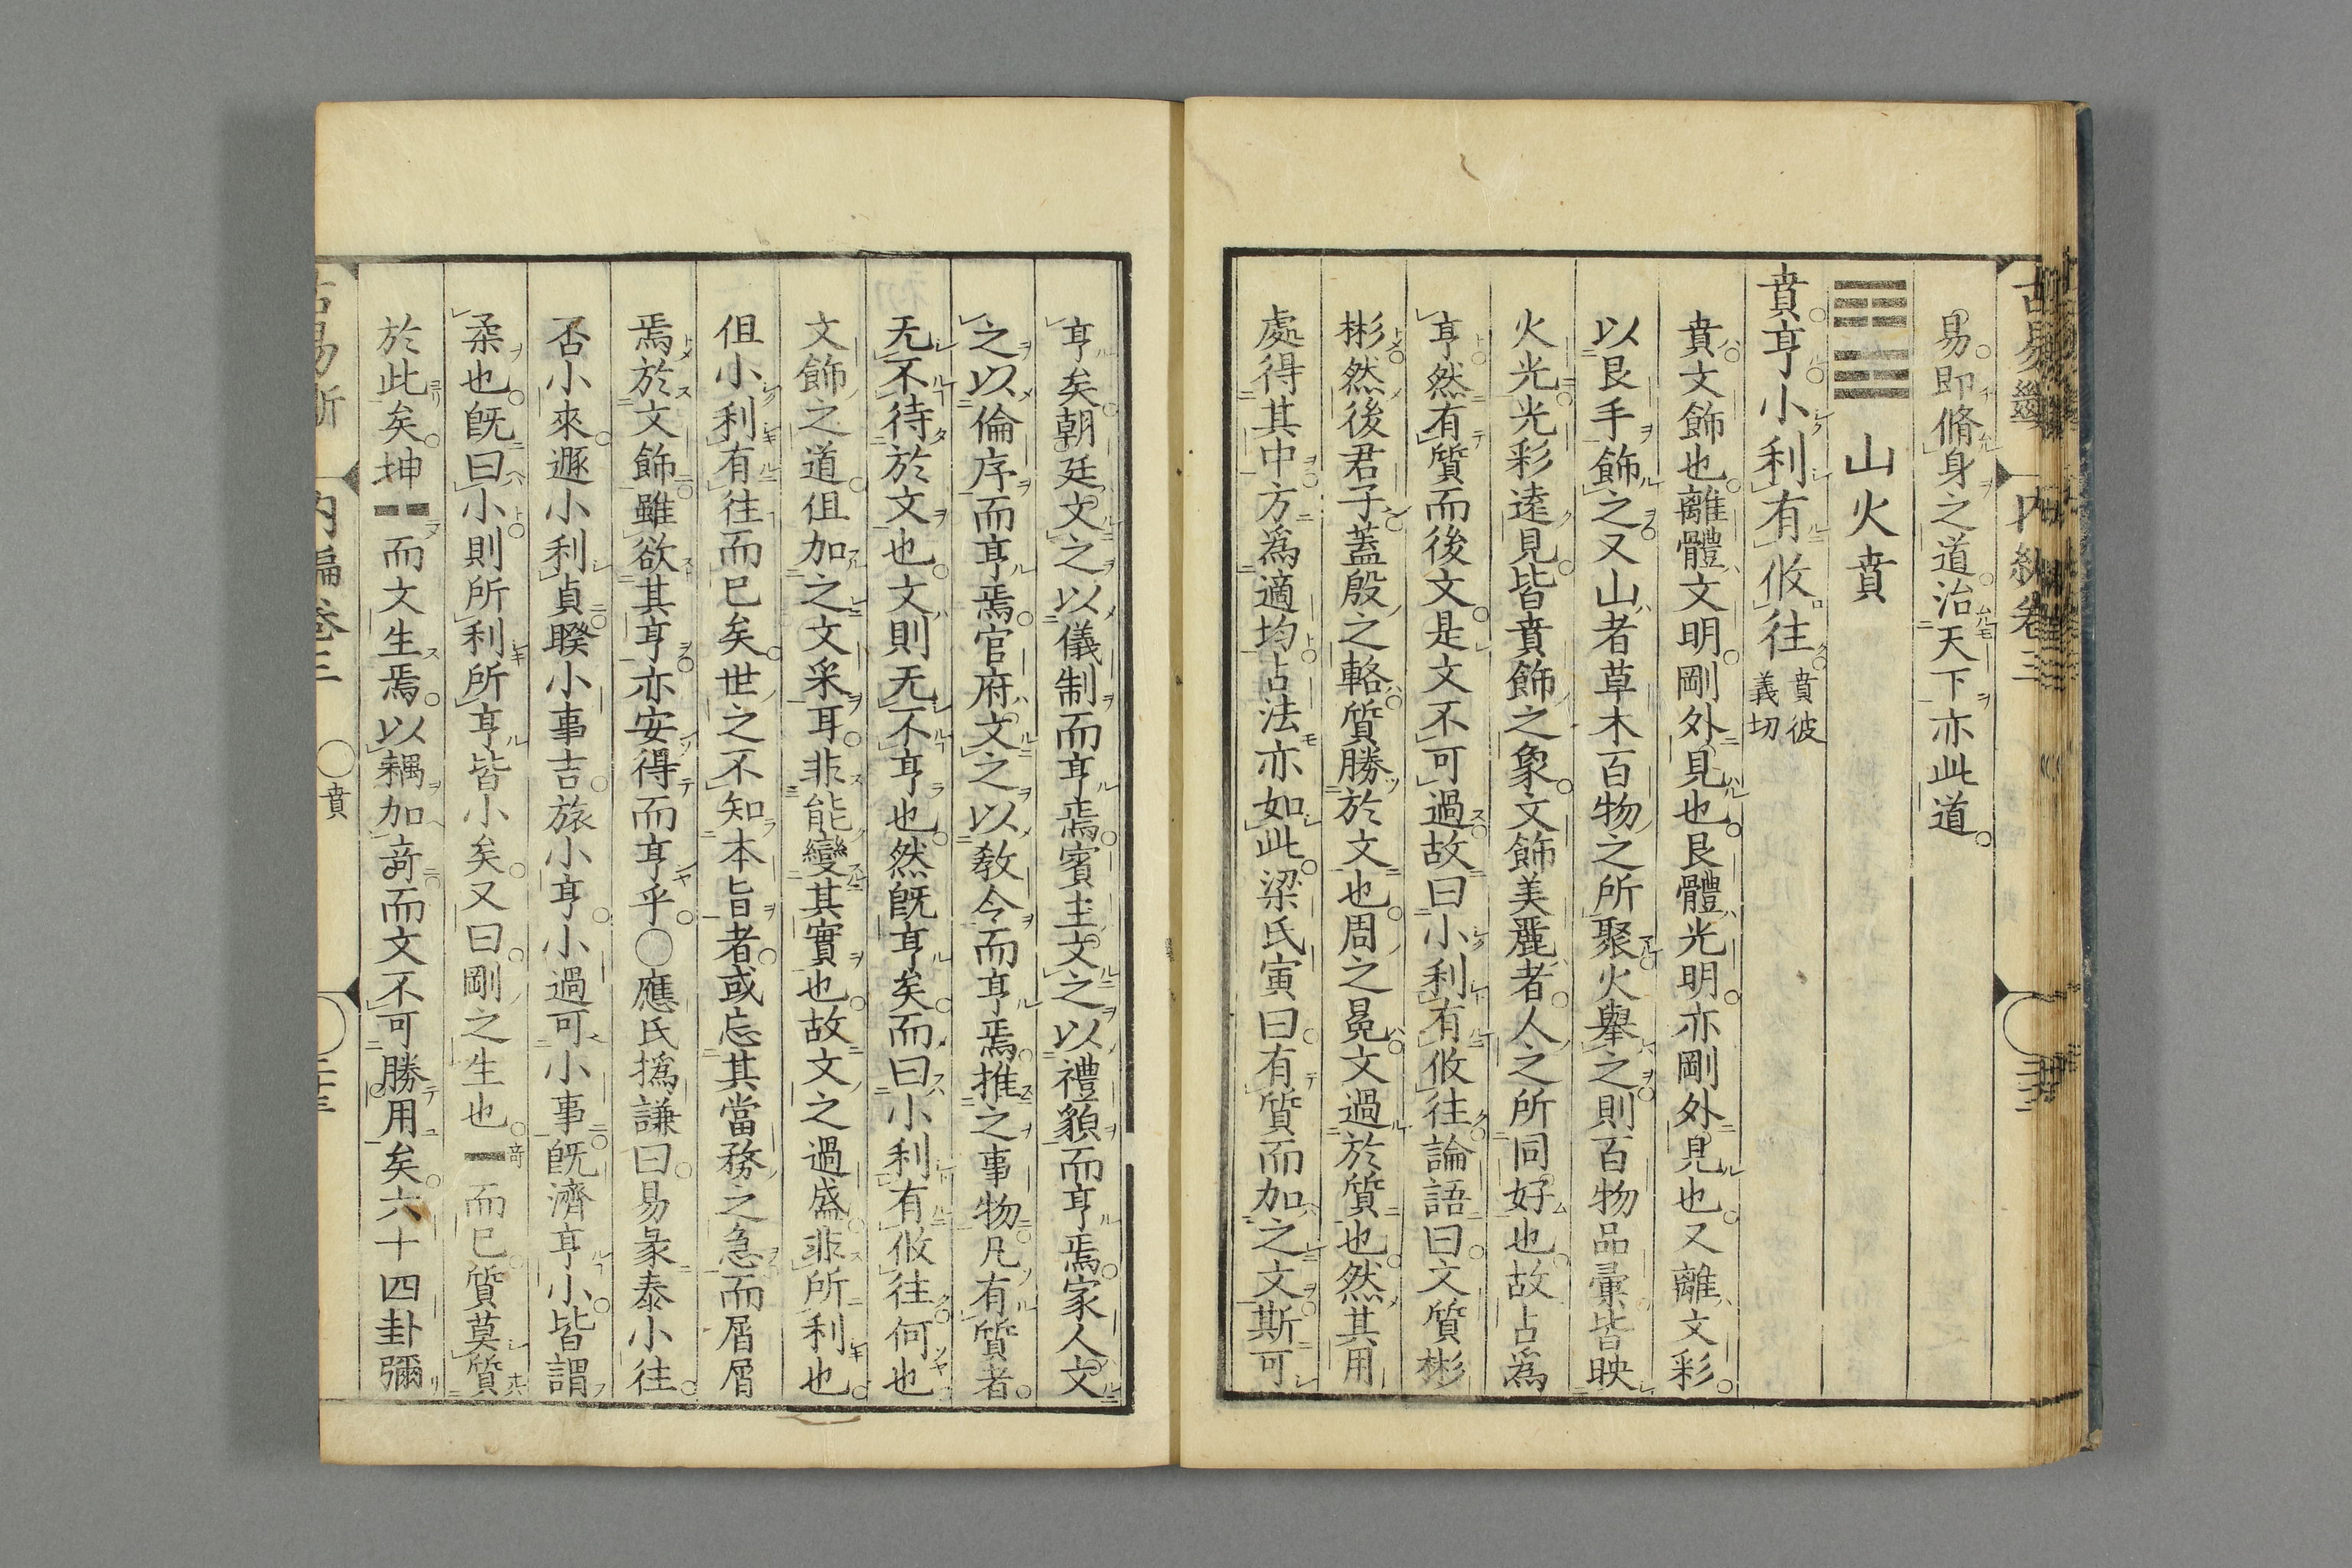 易即脩身之道治天下亦此道
山火賁
賁亨小利有攸往賁彼義切
賁文飾也離體文明剛外見也艮體光明亦剛外見也又離文彩
以艮手飾之又山者草木百物之所聚火舉之則百物品彙皆映
火光光彩遠見皆賁飾之象文飾美麗者人之所同好也故占為
亨然有質而後文是文不可過故曰小利有攸往論語曰文質彬
彬然後君子蓋殷之輅質勝於文也周之冕文過於質也然其用
處得其中方為適均占法亦如此梁氏寅曰有質而加之文斯可
亨矣朝廷文之以儀制而亨焉賓主文之以禮貌而亨焉家人文
之以倫序而亨焉官府文之以敎令而亨焉推之事物凡有質者
无不待於文也文則无不亨也然旣亨矣而曰小利有攸往何也
文飾之道但加之文采耳非能變其實也故文之過盛非所利也
但小利有往而已矣世之不知本旨者或忘其當務之急而屑屑
焉於文飾雖欲其亨亦安得而亨乎○應氏撝謙曰易彖泰小往
否小來遯小利貞睽小事吉旅小亨小過可小事旣濟亨小皆謂
柔也旣曰小則所利所亨皆小矣又曰剛之生也⚊奇而已質莫質
於此矣坤⚋而文生焉以耦加奇而文不可勝用矣六十四卦彌
内編卷三 ○賁